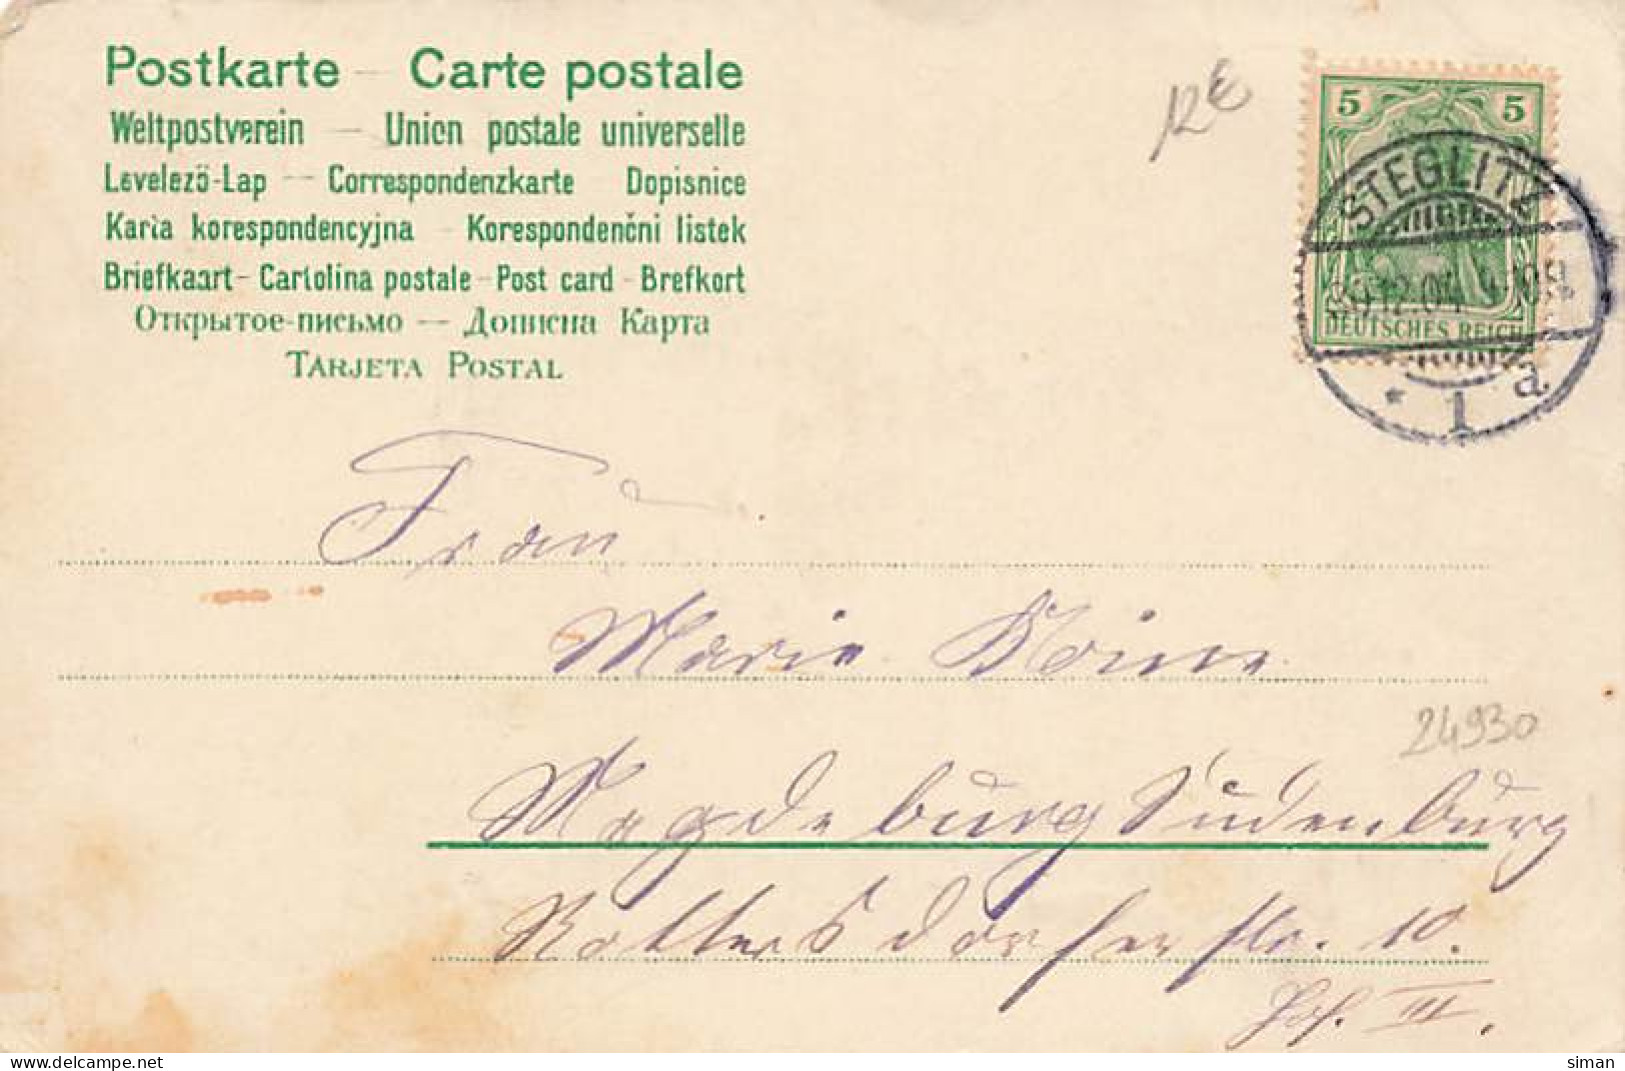 Postkarte — Carte postale
Weltpostverein — Union postale universelle
Levelező-Lap — Correspondenzkarte Dopisnice
Karta korespondencyjna - Korespondenčni listek
Briefkaart - Cartolina postale - Post card - Brefkort
Открытое-письмо — Дописна Карта
TARJETA POSTAL
12 €
5 5
STEGLITZ
12.04
DEUTSCHES REICH
* 1 a
Frau
Marie
24930
Magdeburg Sudenburg
Rottersdorferstr. 10.
Hof. III.
siman